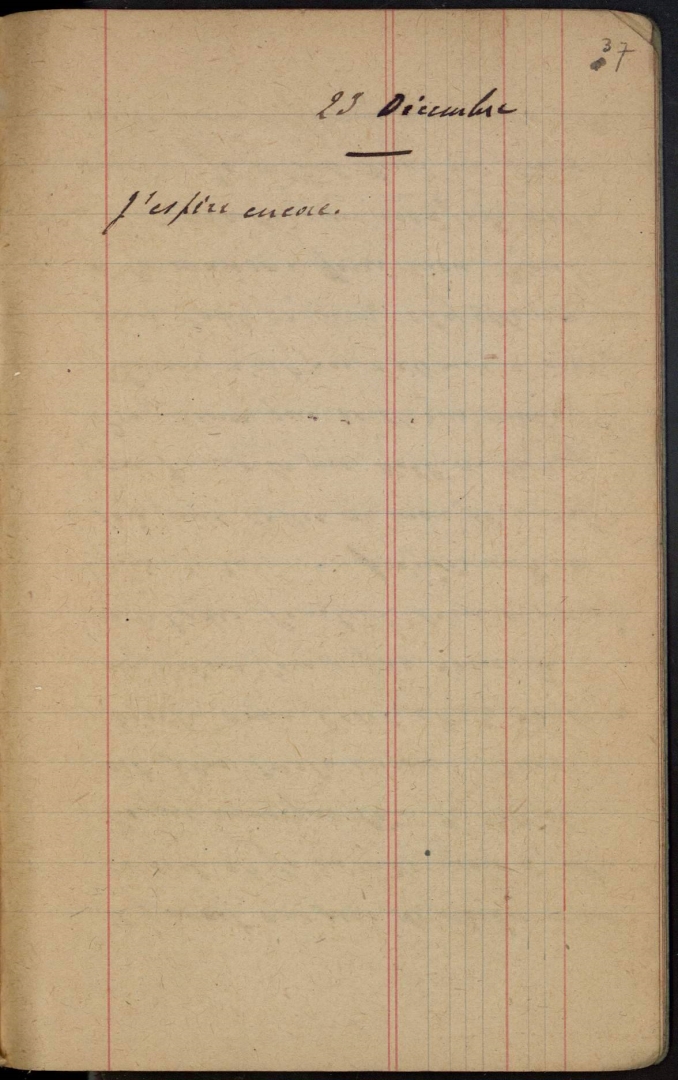 37
23 Décembre
J'espère encore.